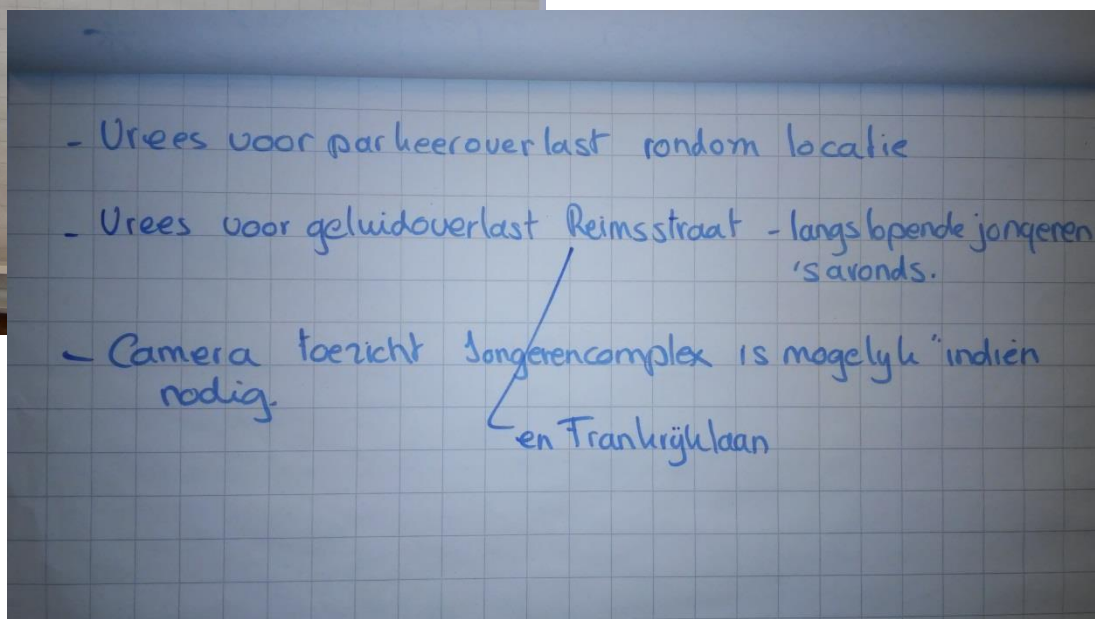 - Vrees voor parkeeroverlast rondom locatie
- Vrees voor geluidoverlast Reimsstraat - langslopende jongeren
's avonds.
- Camera toezicht Jongerencomplex is mogelyk "indien
nodig.
en Frankrijklaan